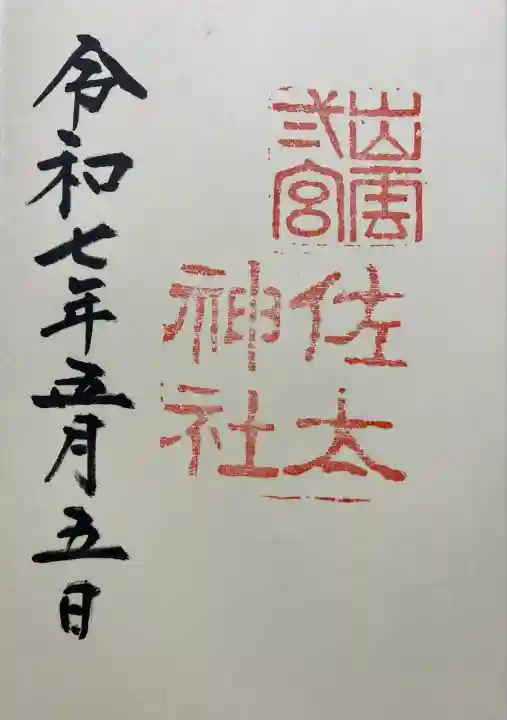 出雲
弐宮
佐太
神社
令和七年五月五日